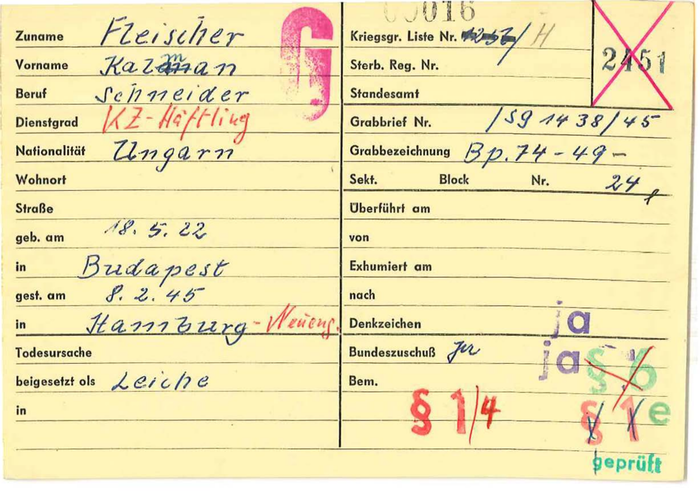 00016
Zuname Fleischer
Vorname Kalman
Beruf Schneider
Dienstgrad KZ-Häftling
Nationalität Ungarn
Wohnort
Straße
geb. am 18.5.22
in Budapest
gest. am 8.2.45
in Hamburg - Neueng.
Todesursache
beigesetzt als Leiche
in
G
Kriegsgr. Liste Nr. /H
Sterb. Reg. Nr.
Standesamt
2451
Grabbrief Nr. /SG 1438/45
Grabbezeichnung Bp. 74-49-
Sekt. Block Nr. 24
Überführt am
von
Exhumiert am
nach
Denkzeichen ja
Bundeszuschuß ja
Bem.
§ 6
§ 1/4
§ 1 e
geprüft